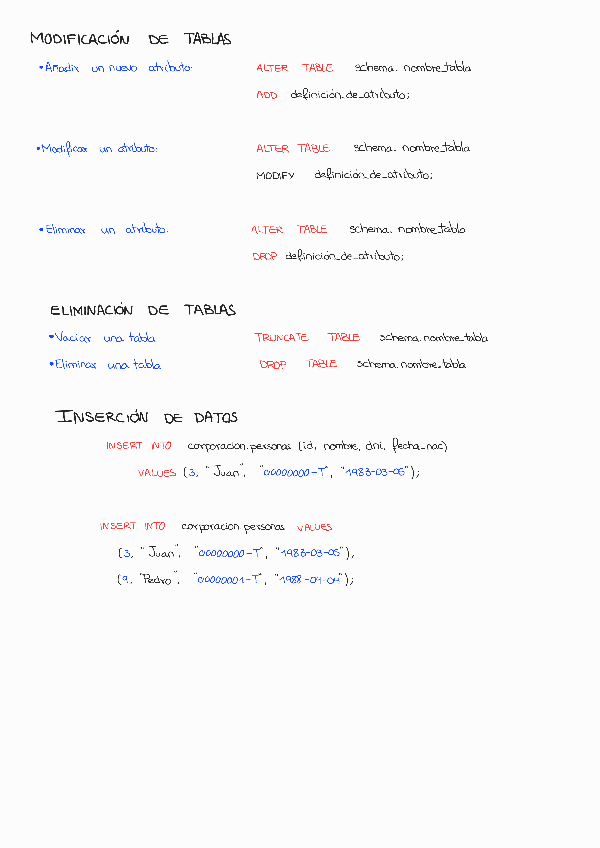 MODIFICACIÓN DE TABLAS
• Añadir un nuevo atributo: ALTER TABLE schema.nombre_tabla
ADD definición_de_atributo;
• Modificar un atributo: ALTER TABLE schema.nombre_tabla
MODIFY definición_de_atributo;
• Eliminar un atributo: ALTER TABLE schema.nombre_tabla
DROP definición_de_atributo;
ELIMINACIÓN DE TABLAS
• Vaciar una tabla TRUNCATE TABLE schema.nombre_tabla
• Eliminar una tabla DROP TABLE schema.nombre_tabla
INSERCIÓN DE DATOS
INSERT INTO corporacion.personas (id, nombre, dni, fecha_nac)
VALUES (3, "Juan", "00000000-T", "1983-03-05");
INSERT INTO corporacion.personas VALUES
(3, "Juan", "00000000-T", "1983-03-05"),
(9, "Pedro", "00000001-T", "1988-04-04");